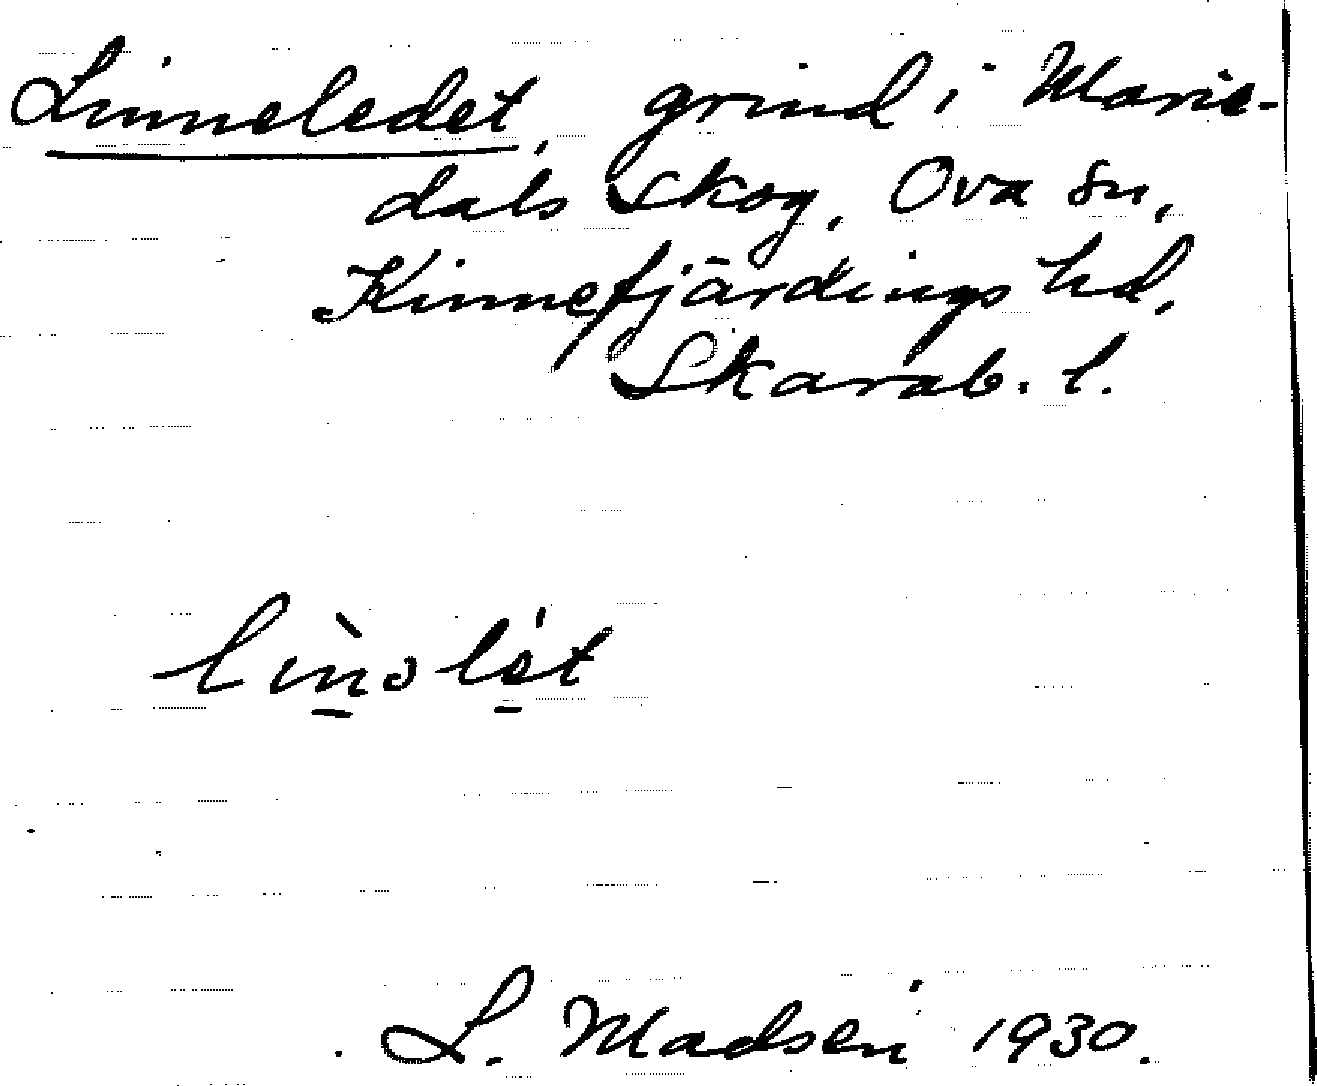 Linneledet, grind i Marie-
dals skog, Ova sn,
Kinnefjärdings hd,
Skarab. l.
lìnolét
L. Madsen 1930.